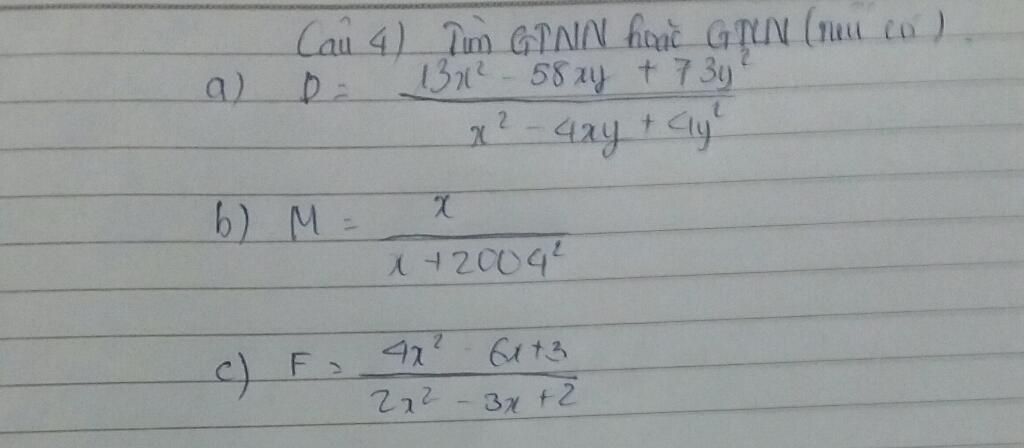 Câu 4) Tìm GTNN hoặc GTLN (nếu có).
a) D = 13x² - 58xy + 73y² / x² - 4xy + 4y²
b) M = x / x + 2004²
c) F = 4x² - 6x + 3 / 2x² - 3x + 2